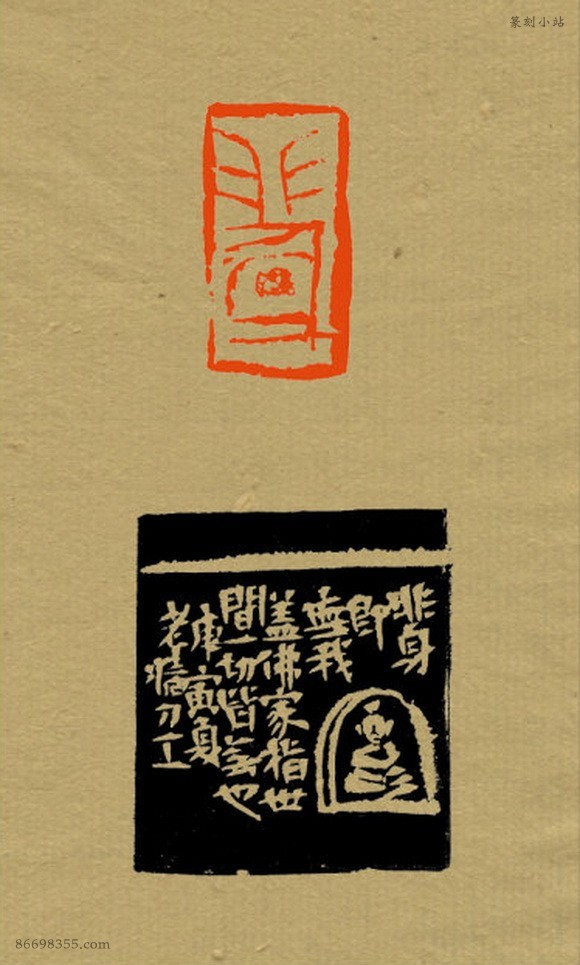 篆刻小站
非身
非身
即
無我
盖佛家指世
間一切皆也
庚寅
老刀工
86698355.com